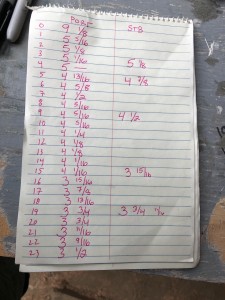 Post STB
0 9 1/8
1 5 3/16
2 5 1/8
3 5 1/16
4 5 — 5 1/8
5 4 13/16 4 7/8
6 4 5/8
7 4 1/2
8 4 5/16 4 1/2
9 4 5/16
10 4 3/16
11 4 1/4
12 4 1/8
13 4 1/8
14 4 1/16
15 4 1/16 3 15/16
16 3 15/16
17 3 7/8
18 3 13/16
19 3 3/4 3 3/4
20 3 3/4
21 3 11/16
22 3 9/16
23 3 1/2